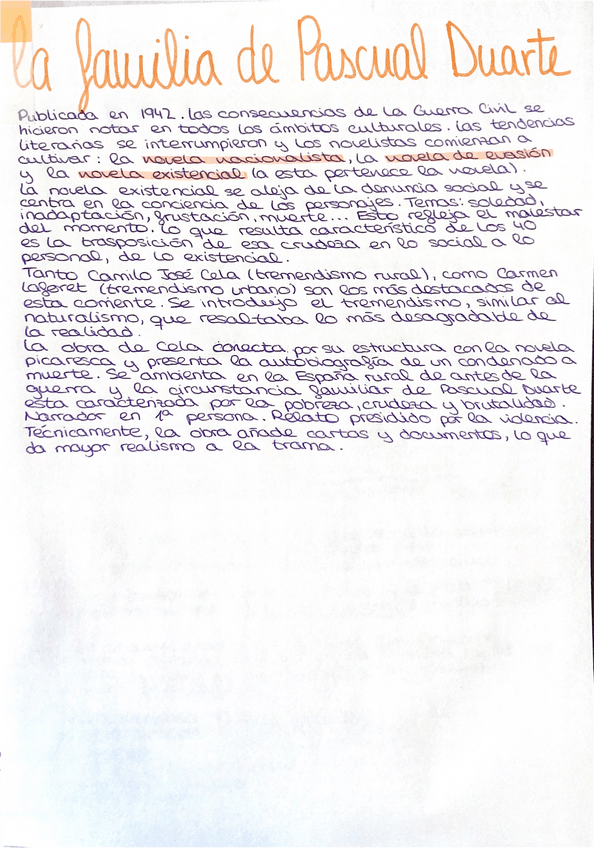 la familia de Pascual Duarte
Publicada en 1942. Las consecuencias de la Guerra Civil se
hicieron notar en todos los ámbitos culturales. Las tendencias
literarias se interrumpieron y los novelistas comienzan a
cultivar: la novela nacionalista, la novela de evasión
y la novela existencial (a esta pertenece la novela).
La novela existencial se aleja de la denuncia social y se
centra en la conciencia de los personajes. Temas: soledad,
inadaptación, frustación, muerte... Esto refleja el malestar
del momento. Lo que resulta característico de los 40
es la trasposición de esa crudeza en lo social a lo
personal, de lo existencial.
Tanto Camilo José Cela (tremendismo rural), como Carmen
Laforet (tremendismo urbano) son los más destacados de
esta corriente. Se introdujo el tremendismo, similar al
naturalismo, que resaltaba lo más desagradable de
la realidad.
La obra de Cela conecta por su estructura con la novela
picaresca y presenta la autobiografía de un condenado a
muerte. Se ambienta en la España rural de antes de la
guerra y la circunstancia familiar de Pascual Duarte
esta caracterizada por la pobreza, crudeza y brutalidad.
Narrador en 1ª persona. Relato presidido por la violencia.
Técnicamente, la obra añade cartas y documentos, lo que
da mayor realismo a la trama.